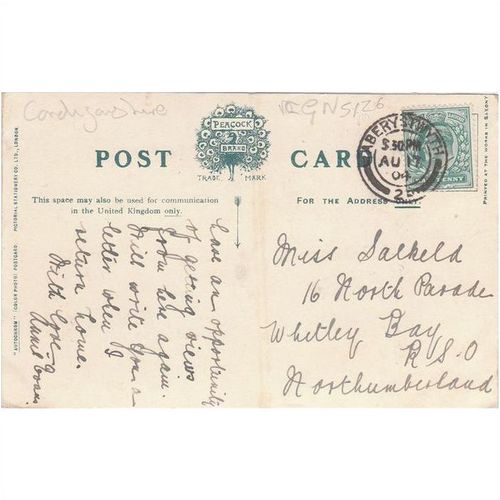 Cardiganshire
PEACOCK
BRAND
TRADE MARK
POST CARD
This space may also be used for communication
in the United Kingdom only.
FOR THE ADDRESS ONLY.
"AUTOCHROM" (COLOR PHOTO) POSTCARD
PICTORIAL STATIONERY CO. LTD., LONDON
PRINTED AT THE WORKS IN SAXONY
ABERYSTWYTH
5.30 PM
AU 17
04
PENNY
have an opportunity
of getting views
from here again.
Will write you a
letter when I
return home.
With love
Annie Evans
Miss Salkeld
16 North Parade
Whitley Bay
R.S.O
Northumberland